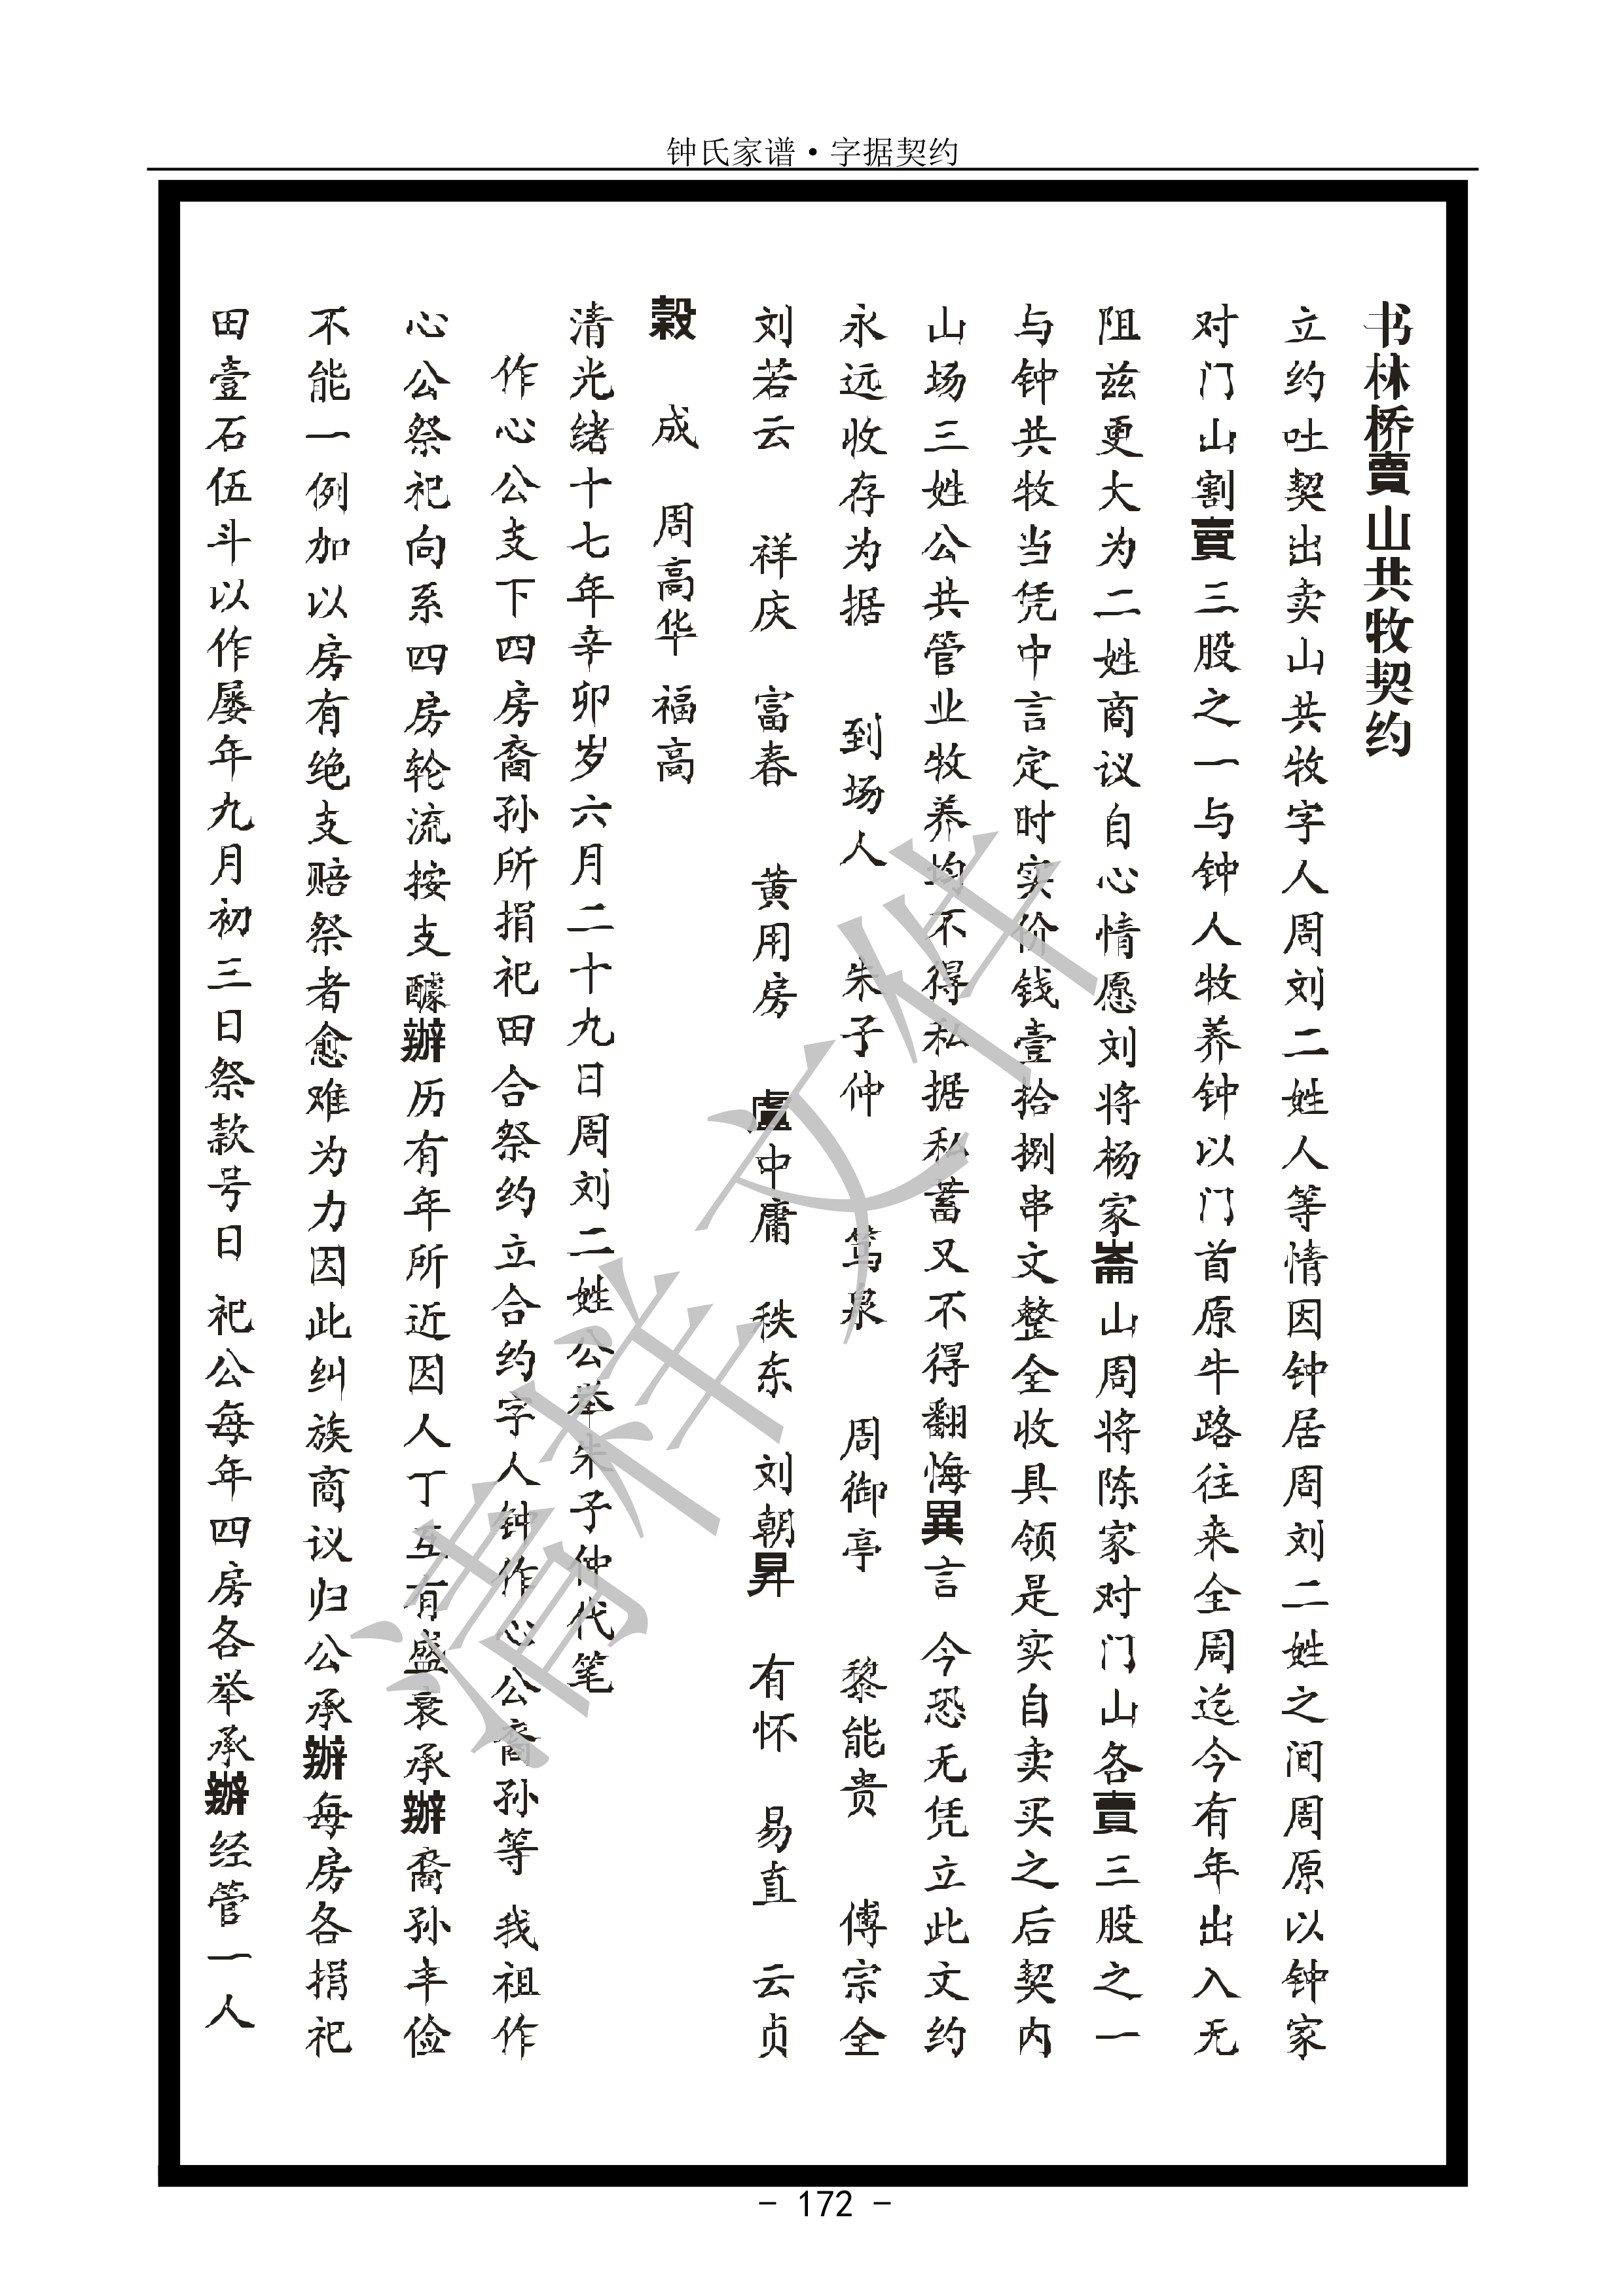 钟氏家谱·字据契约
书林桥賣山共牧契约
立约吐契出卖山共牧字人周刘二姓人等情因钟居周刘二姓之间周原以钟家
对门山割賣三股之一与钟人牧养钟以门首原牛路往来全周迄今有年出入无
阻兹更大为二姓商议自心情愿刘将杨家崙山周将陈家对门山各賣三股之一
与钟共牧当凭中言定时实价钱壹拾捌串文整全收具领是实自卖买之后契内
山场三姓公共管业牧养均不得私据私蓄又不得翻悔異言 今恐无凭立此文约
永远收存为据 到场人 朱子仲 笃泉 周御亭 黎能贵 傅宗全
刘若云 祥庆 富春 黄用房 盧中庸 秩东 刘朝昇 有怀 易直 云贞
榖 成 周高华 福高
清光绪十七年辛卯岁六月二十九日周刘二姓公举朱子仲代笔
作心公支下四房裔孙所捐祀田合祭约立合约字人钟作心公裔孙等 我祖作
心公祭祀向系四房轮流按支醵辦历有年所近因人丁互有盛衰承辦裔孙丰俭
不能一例加以房有绝支赔祭者愈难为力因此纠族商议归公承辦每房各捐祀
田壹石伍斗以作屡年九月初三日祭款号日 祀公每年四房各举承辦经管一人
- 172 -
清样文件